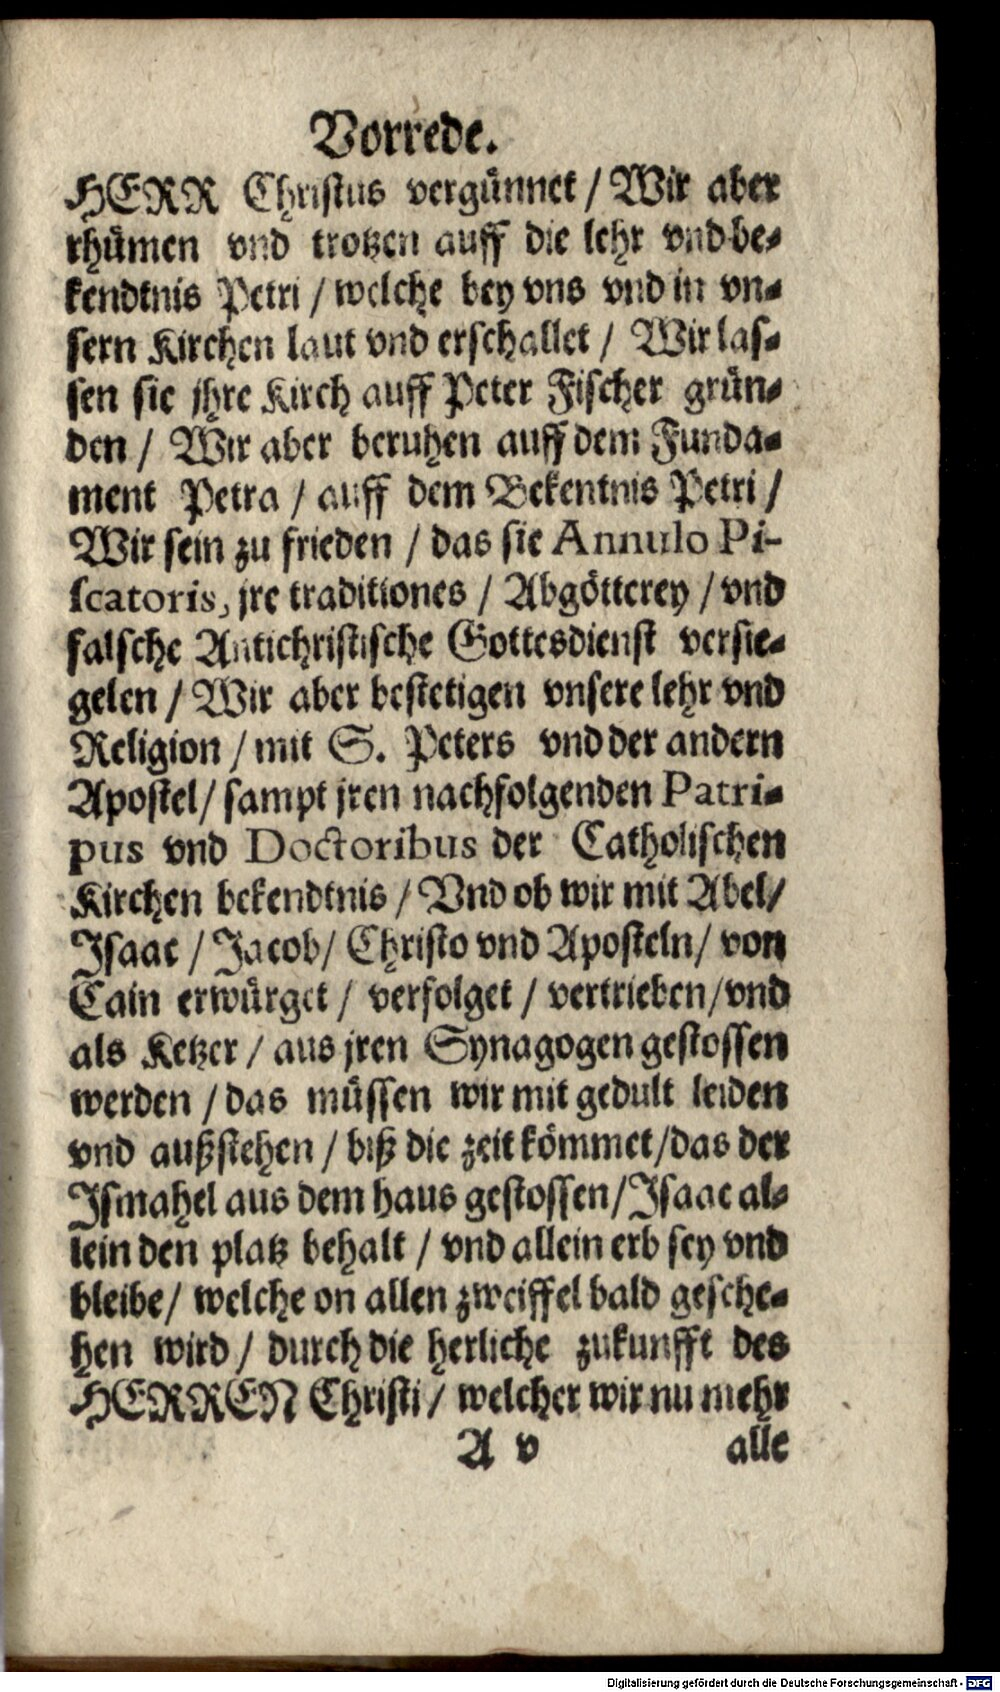 Vorrede.
HERR Christus vergünnet / Wir aber
rhümen vnd trotzen auff die lehr vnd be-
kendtnis Petri / welche bey vns vnd in vn-
sern Kirchen laut vnd erschallet / Wir las-
sen sie jhre Kirch auff Peter Fischer grün-
den / Wir aber beruhen auff dem Funda-
ment Petra / auff dem Bekentnis Petri /
Wir sein zu frieden / das sie Annulo Pi-
scatoris, jre traditiones / Abgötterey / vnd
falsche Antichristische Gottesdienst versie-
gelen / Wir aber bestetigen vnsere lehr vnd
Religion / mit S. Peters vnd der andern
Apostel / sampt jren nachfolgenden Patri-
pus vnd Doctoribus der Catholischen
Kirchen bekendtnis / Vnd ob wir mit Abel /
Isaac / Jacob / Christo vnd Aposteln / von
Cain erwürget / verfolget / vertrieben / vnd
als Ketzer / aus jren Synagogen gestossen
werden / das müssen wir mit gedult leiden
vnd außstehen / biß die zeit kömmet / das der
Ismahel aus dem haus gestossen / Isaac al-
lein den platz behalt / vnd allein erb sey vnd
bleibe / welche on allen zweiffel bald gesche-
hen wird / durch die herliche zukunfft des
HERREN Christi / welcher wir nu mehr
A v alle
Digitalisierung gefördert durch die Deutsche Forschungsgemeinschaft - DFG